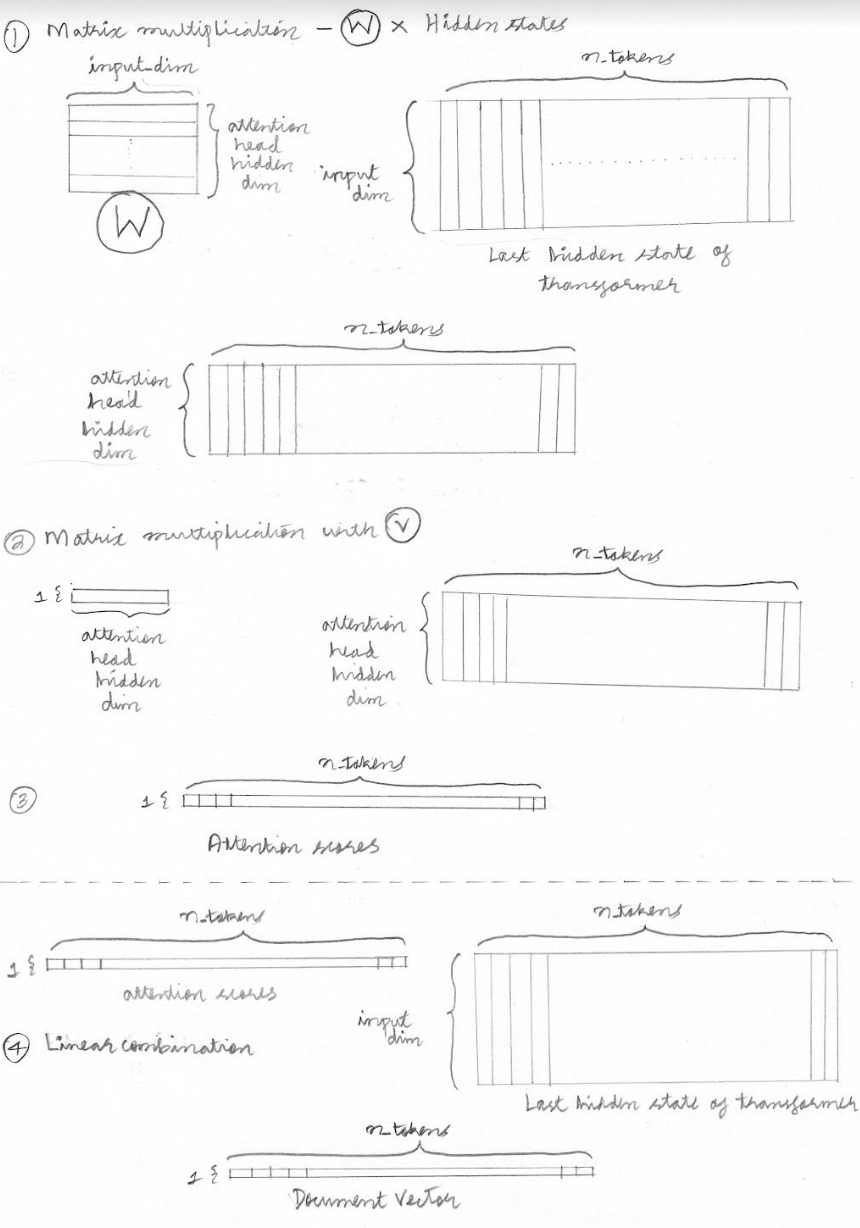 ① Matrix multiplication - Ⓦ × Hidden states
input-dim
n-tokens
attention
head
hidden
dim
input
dim
W
Last hidden state of
transformer
n-tokens
attention
head
hidden
dim
② Matrix multiplication with Ⓥ
n-tokens
1
attention
head
hidden
dim
attention
head
hidden
dim
n-tokens
③ 1
Attention scores
n-tokens
n-tokens
1
attention scores
input
dim
④ Linear combination
Last hidden state of transformer
n-tokens
1
Document Vector